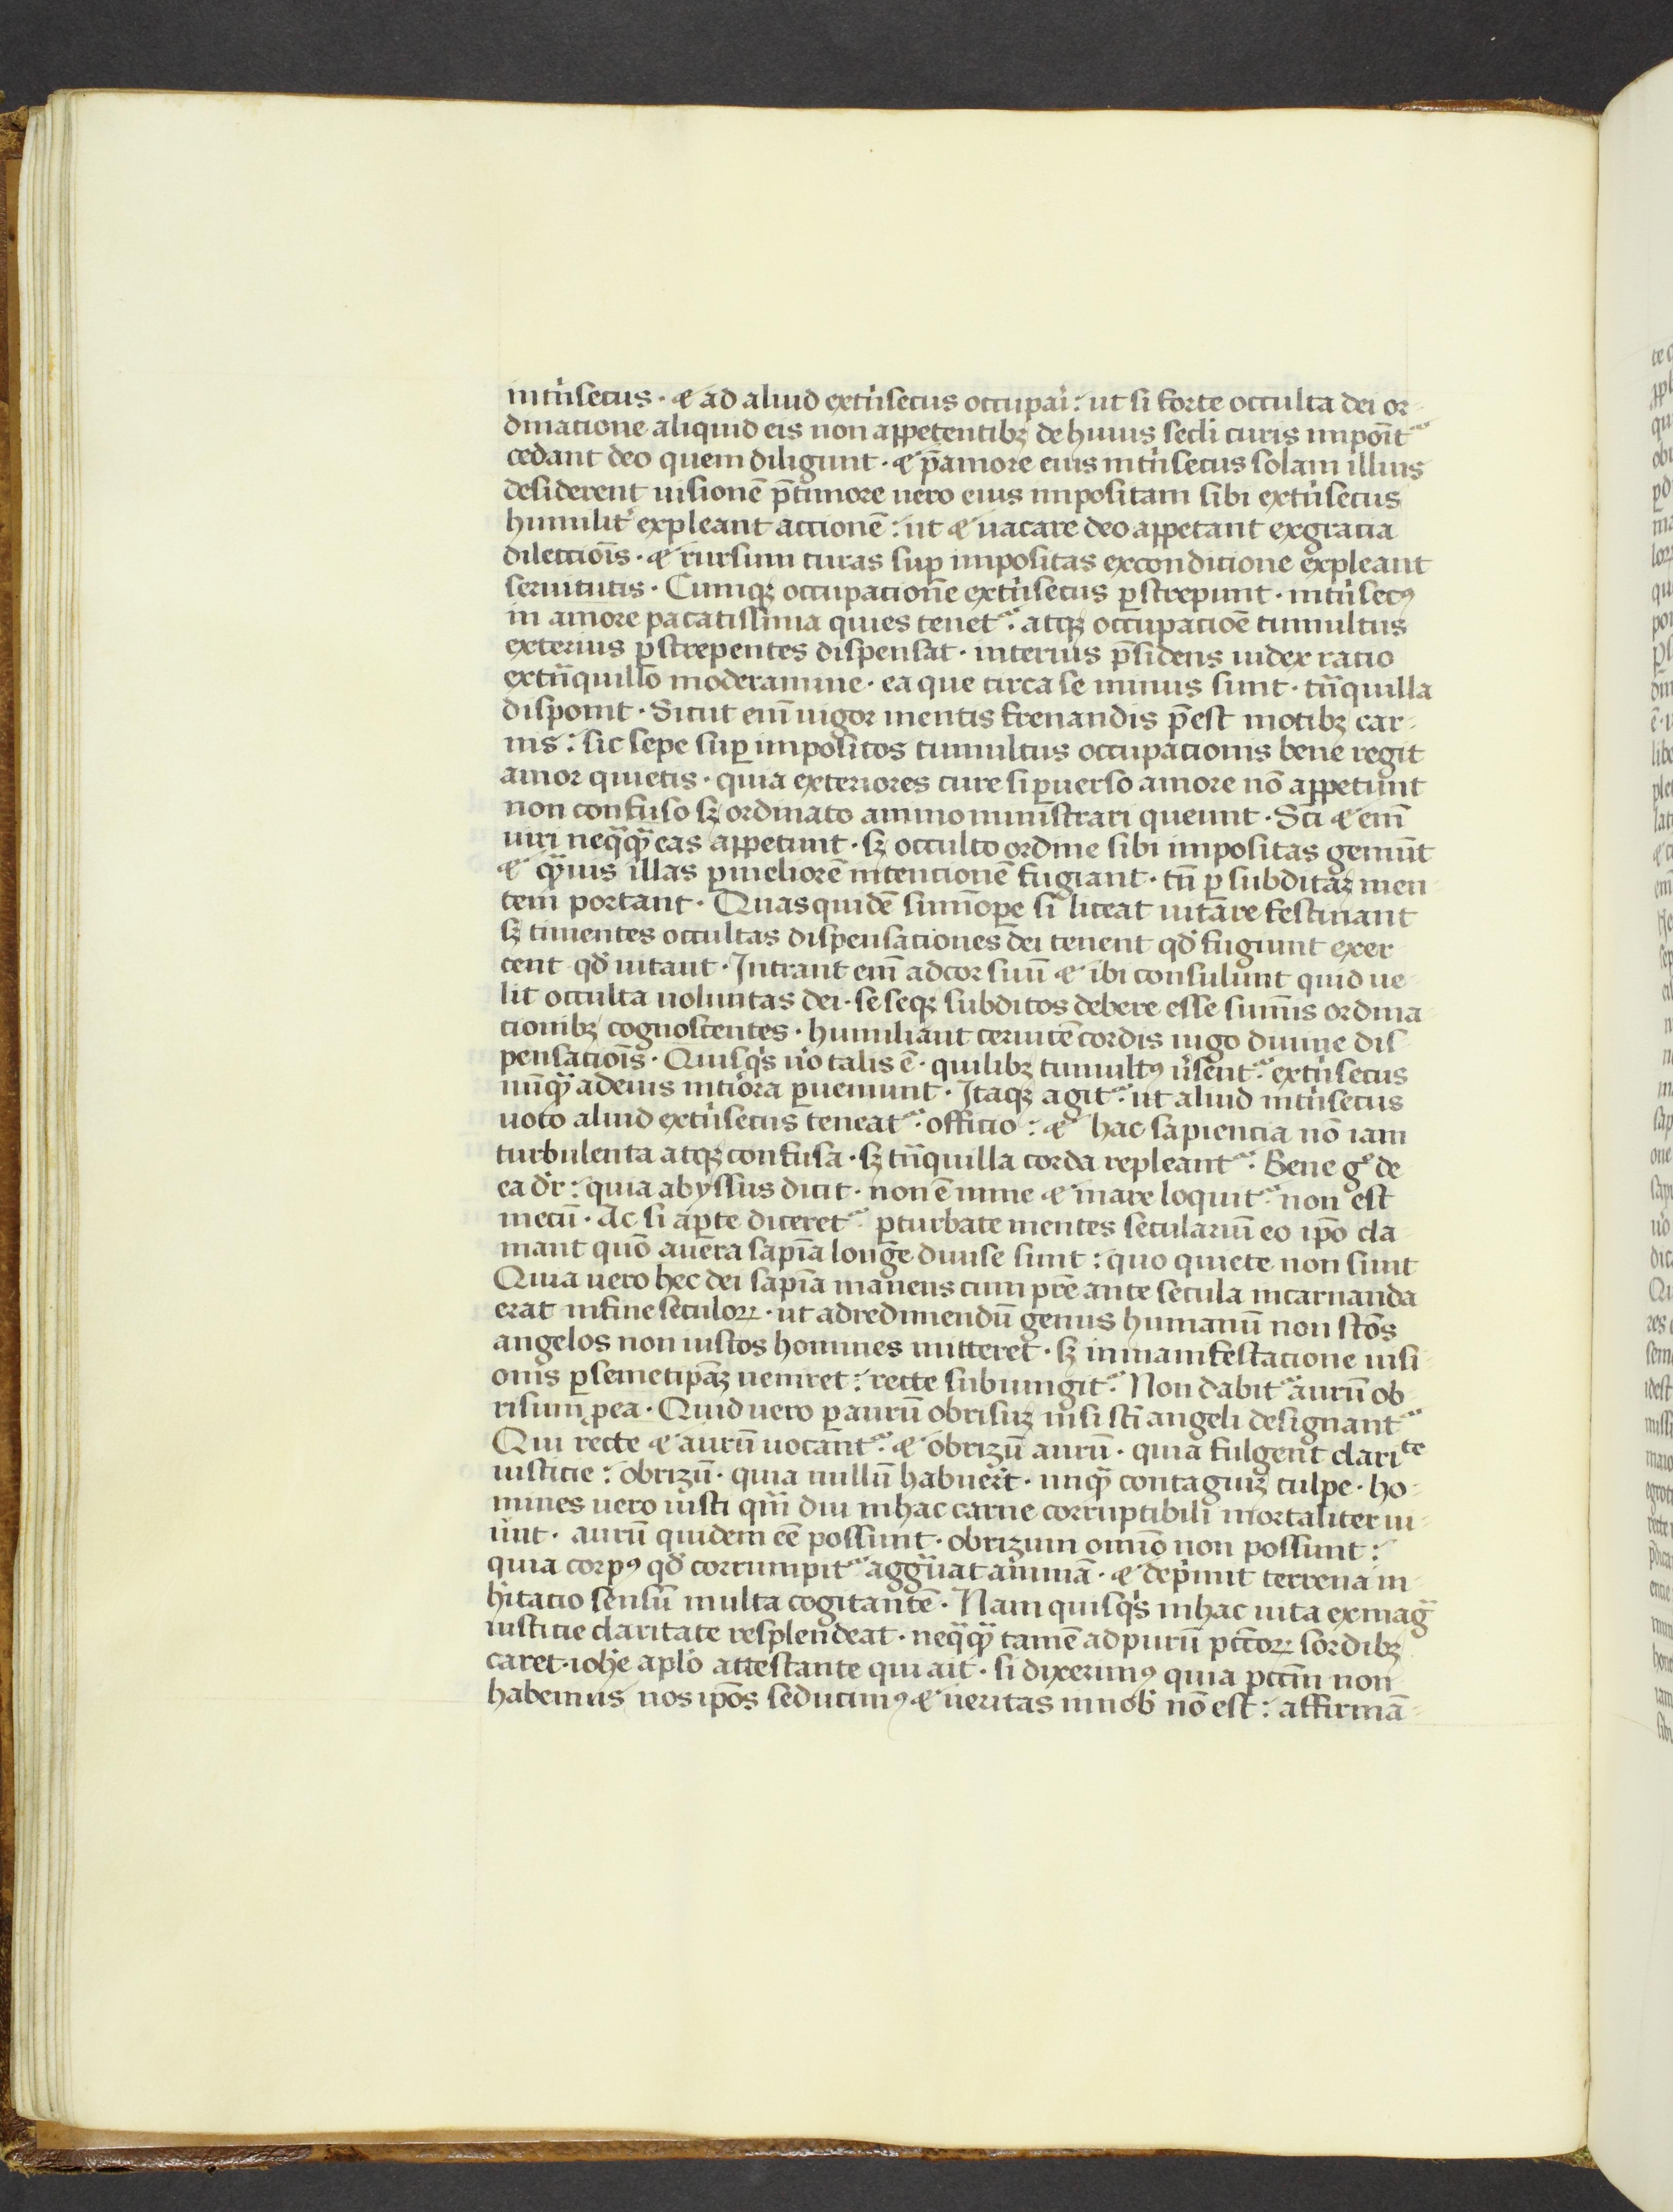 intͥsecus · ⁊ ad aliud extͥsecus occupaͥ : ut si forte occulta dei or-
dinatione aliquid eis non appetentibꝫ de huius secli curis imponit᷑
cedant deo quem diligunt · ⁊ p̄ amore eius intͥsecus solam illius
desiderent uisionē p̄ timore uero eius impositam sibi extͥsecus
humilit͛ expleant actionē : ut ⁊ uacare deo appetant ex gracia
dilectiōis · ⁊ rursum curas suꝑ impositas ex conditione expleant
seruitutis · Cumqꝫ occupationē extͥsecus ꝑstrepunt · intͥsecꝰ
in amore pacatissima quies tenet᷑ · atqꝫ occupacioē tumultus
exterius ꝑstrepentes dispensat · interius p̄sidens iudex racio
ex tͣnquillo moderamine · ea que circa se minus sunt · tͣnquilla
disponit · Sicut enī uigor mentis frenandis p̄est motibꝫ car-
nis : sic sepe suꝑ impositos tumultus occupationis bene regit
amor quietis · quia exteriores cure si ꝑuerso amore nō appetunt
non confuso sꝫ ordinato animo ministrari queunt · Sc̄i ⁊ enī
uiri neqͣqͣ eas appetunt · sꝫ occulto ordine sibi impositas gemūt
⁊ qͣuis illas ꝑ meliorē intentionē fugiant · tn̄ ꝑ subditaꝫ men
tem portant · Quas quidē sūmope si liceat uitare festinant
sꝫ timentes occultas dispensationes dei tenent qd̓ fugiunt exer
cent qd̓ uitant · Intrant enī ad cor suū ⁊ ibi consulunt quid ue-
lit occulta uoluntas dei · se seqꝫ subditos debere esse sum̄is ordina
tionibꝫ cognoscentes · humiliant ceruicē cordis iugo diuine dis-
pensatiōis · Quisqͥs u͛o talis ē · quilibꝫ tumultꝰ u͛sent᷑ : extͥsecus
nūqͣ ad eius intͥora ꝑueniunt · Itaqꝫ agit᷑ : ut aliud intͥsecus
uoto aliud extͥsecus teneat᷑ · officio : ⁊ hac sapiencia nō iam
turbulenta atqꝫ confusa · sꝫ tͣnquilla corda repleant᷑ · Bene gͦ de
ea dr̄ : quia abyssus dicit · non ē in me ⁊ mare loquit᷑ non est
mecū · Ac si aꝑte diceret᷑ ꝑturbate mentes seculariū eo ip̄o cla
mant quō a uera sapīa longe diuise sunt : quo quiete non sunt
Quia uero hec dei sapīa manens cum pr̄e ante secula incarnanda
erat in fine seculoꝝ · ut ad redimendū genus humanū non sc̄os
angelos non iustos homines mitteret · sꝫ in manifestacione uisi
onis ꝑ semetip̄aꝫ ueniret : recte subiungit᷑ · Non dabit᷑ aurū ob-
risum ꝓ ea · Quid uero ꝑ aurū obrisuꝫ nisi sc̄i angeli designant᷑
Qui recte ⁊ aurū uocant᷑ : ⁊ obrizū aurū · quia fulgent clariᵗᵉ
iusticie : obrizū · quia nullū habuer̄t · unqͣ contagiuꝫ culpe · ho-
mines uero iusti qͣmdiu in hac carne corruptibili mortaliter ui-
uūt · aurū quidem eē possunt · obrizum omīo non possunt :
quia corpꝰ qd̓ corrumpit᷑ aggͣuat aiīmā · ⁊ depͥmit terrena in
hͥtatio sensū multa cogitantē · Nam quisqͥs in hac uita ex magͣ
iusticie claritate resplendeat · neqͣqͣ tamē ad purū pcc̄oꝝ sordibꝫ
caret · ioh̄e aplo attestante qui ait · si dixerimꝰ quia pcc̄m non
habemus nos ip̄os seducimꝰ ⁊ ueritas in nob̄ nō est : affirmā-